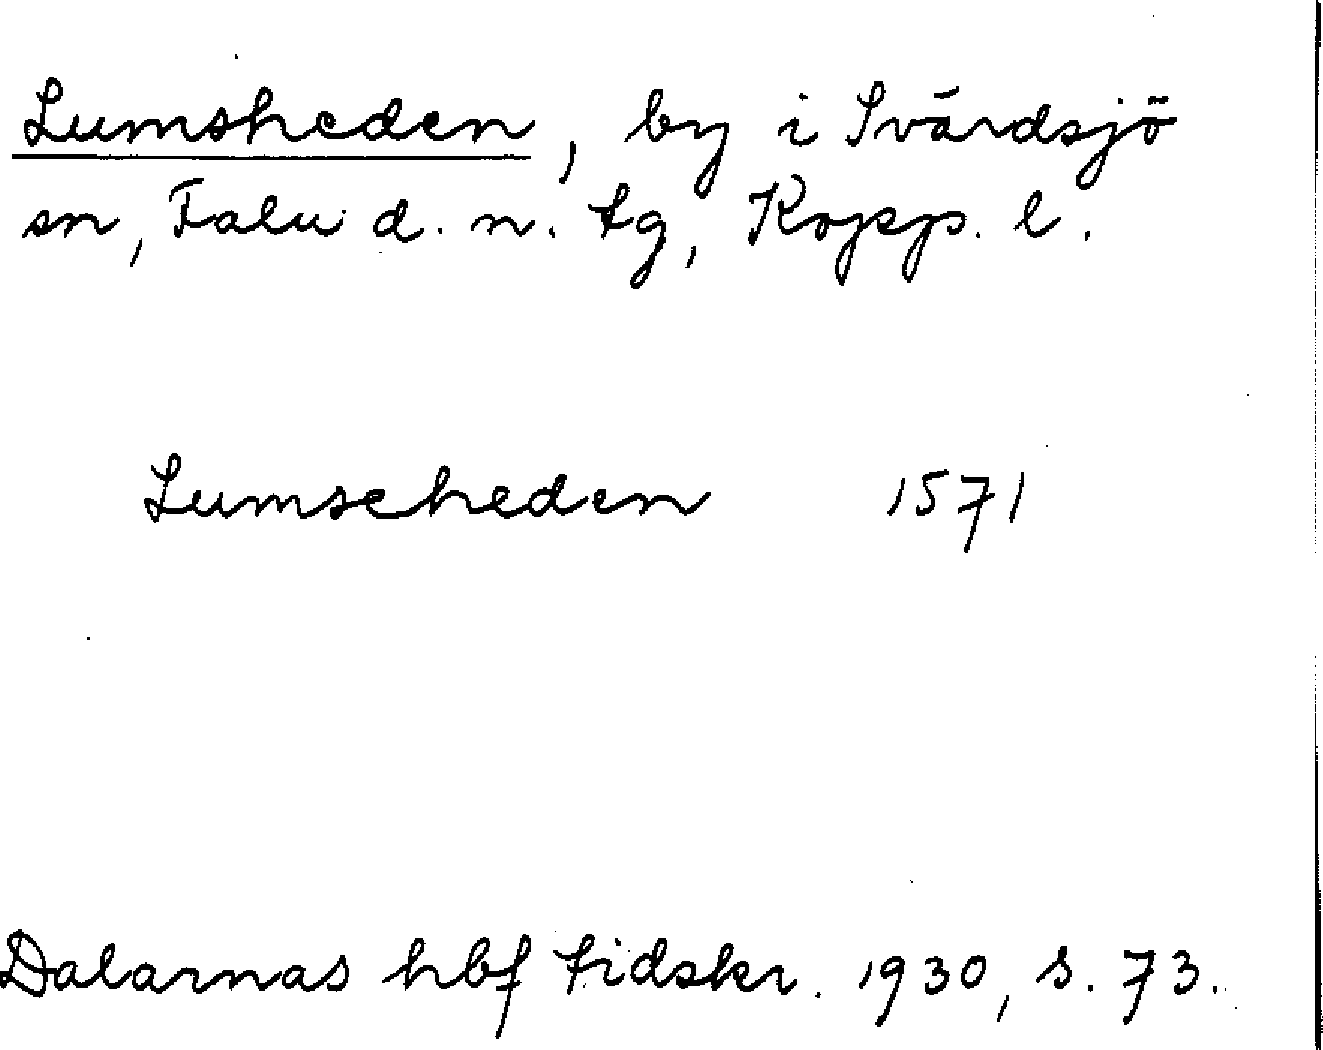 Lumsheden, by i Svärdsjö
sn, Falu d. n. tg, Kopp. l.
Lumscheden 1571
Dalarnas hbf tidskr. 1930, s. 73.